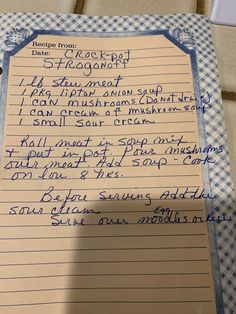 Recipe from:
Date: CROCK-POT
STROGONOFF
1 lb stew meat
1 pkg lipton onion soup
1 can mushrooms (Do not drain)
1 can cream of mushroom soup
1 small sour cream
Roll meat in soup mix
+ put in pot. Pour mushrooms
over meat Add soup - Cook
on low 8 hrs.
Before serving Add the
sour cream
Egg
Serve over noodles or rice